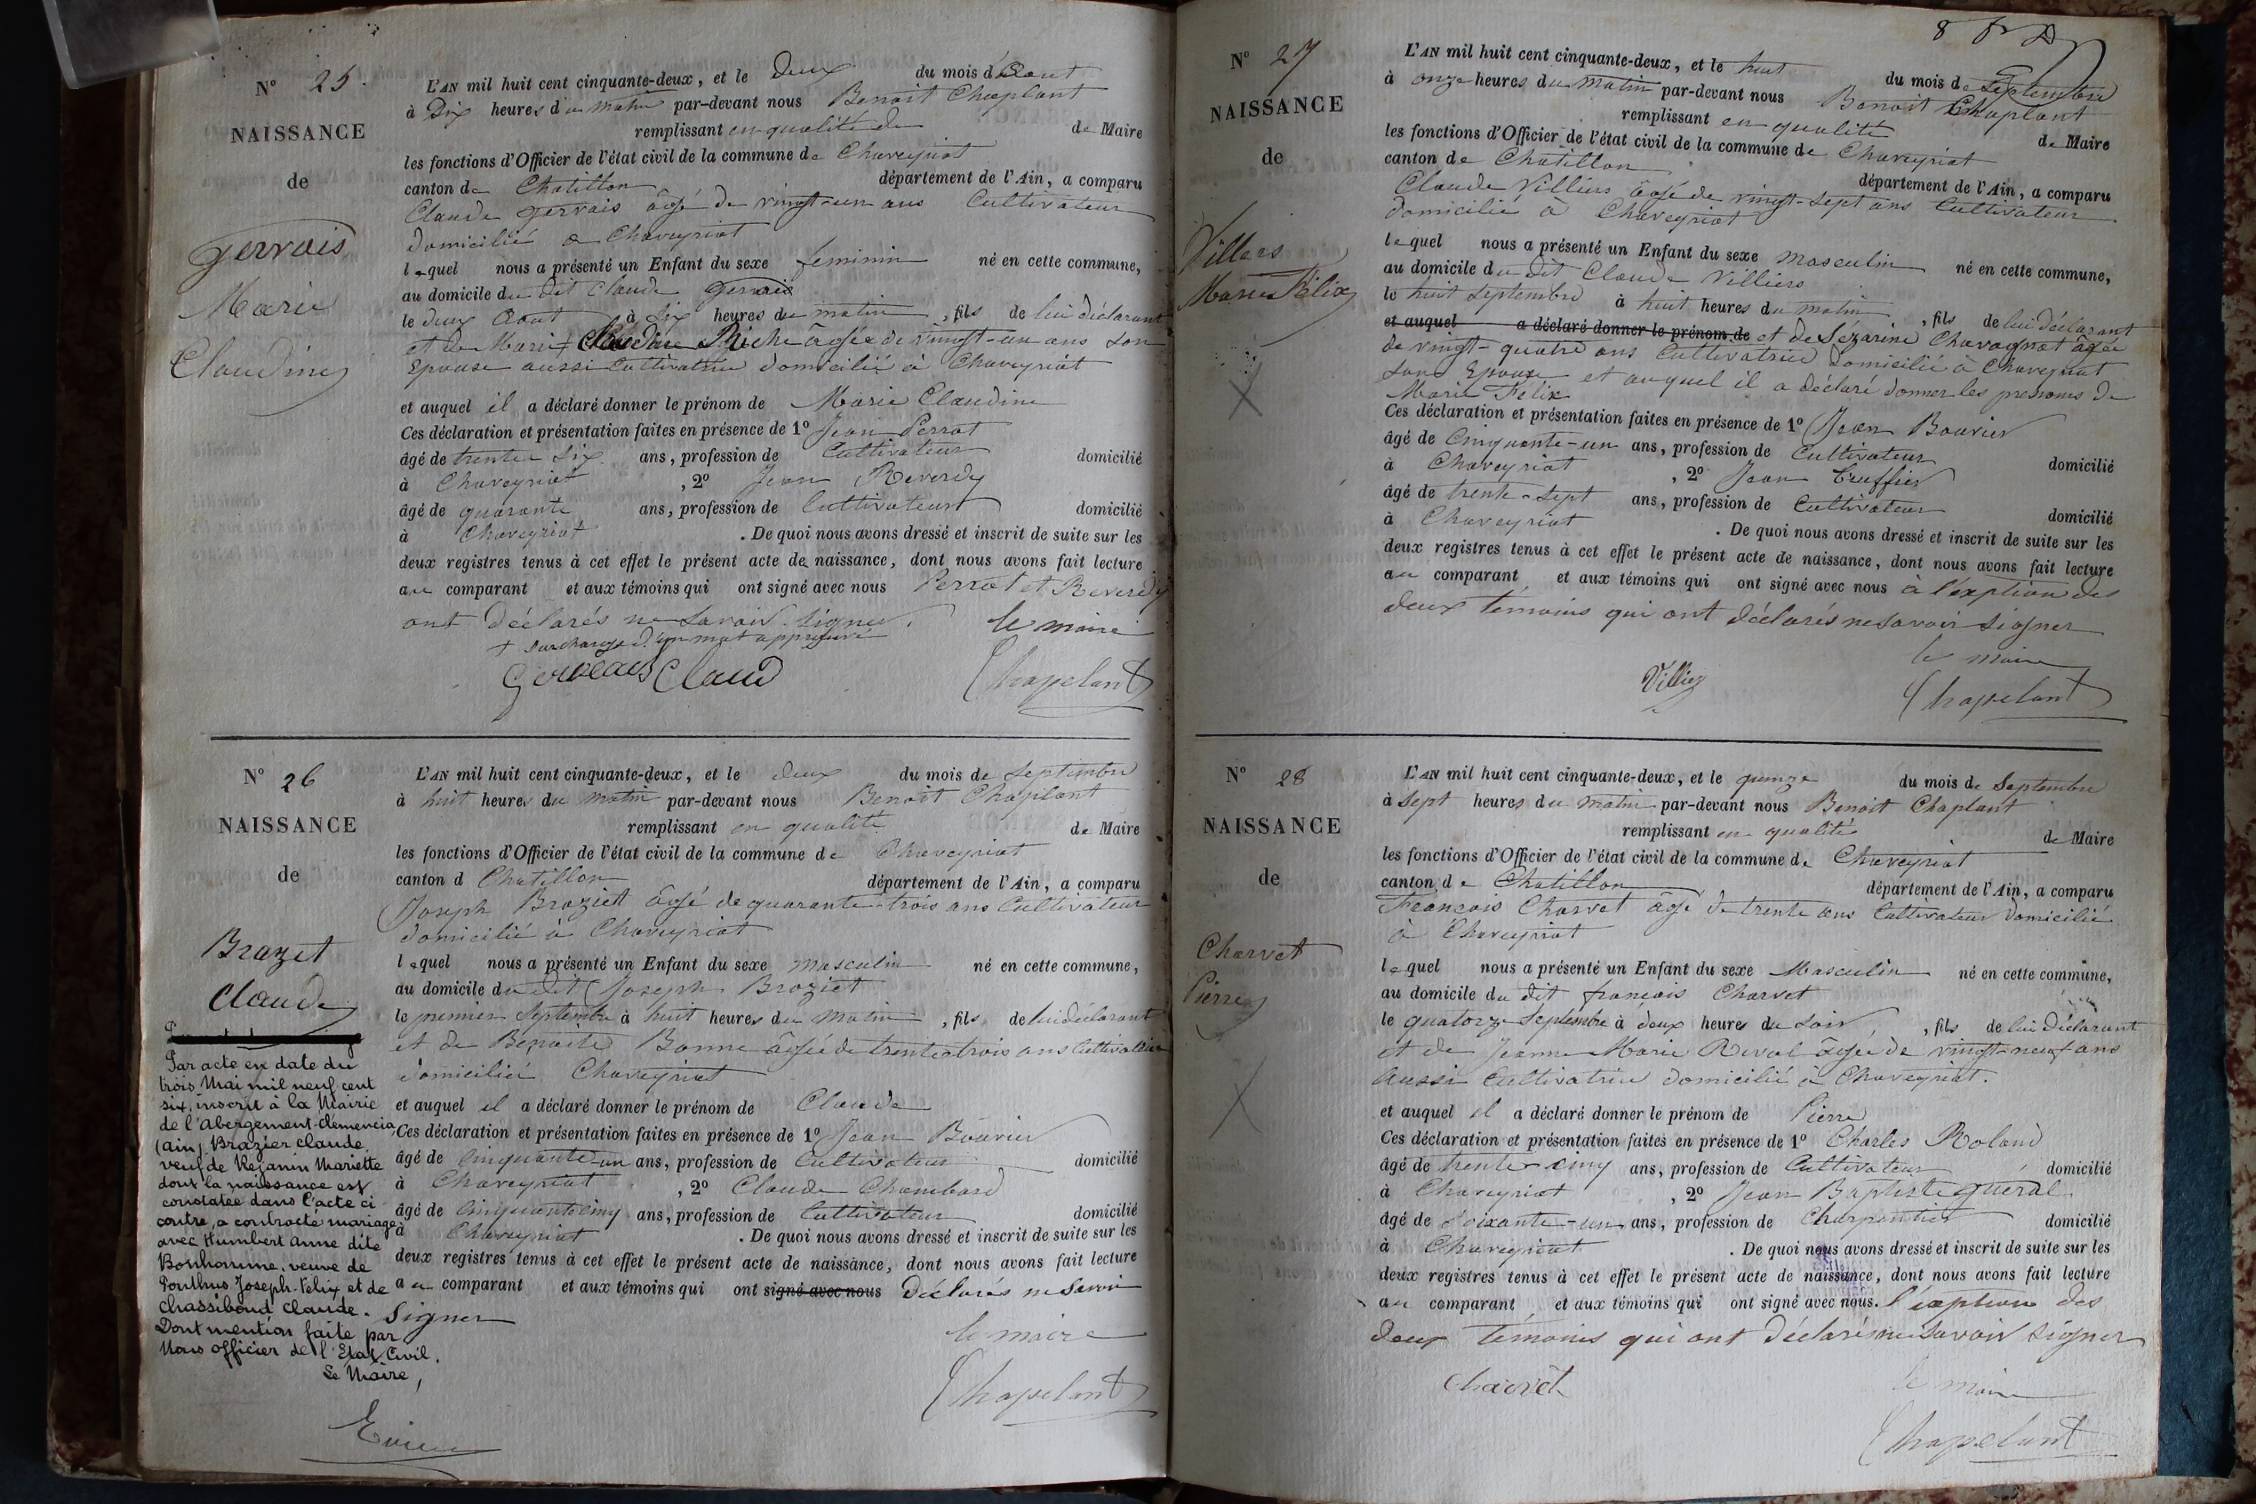 N° 25.
NAISSANCE
de
Gervais
Marie
Claudine
L'AN mil huit cent cinquante-deux, et le deux du mois d'Aout
à Dix heures du matin par-devant nous Benoit Chaplant
remplissant en qualité de de Maire
les fonctions d'Officier de l'état civil de la commune de Chaveyriat
canton de Chatillon département de l'Ain, a comparu
Claude gervais âgé de vingt-un ans Cultivateur
domicilié a Chaveyriat
lequel nous a présenté un Enfant du sexe féminin né en cette commune,
au domicile du dit Claude gervais
le deux Aout à six heures du matin, fils de lui déclarant
et de Marie + Claudine Riche âgée de vingt-un ans son
Epouse aussi Cultivatrice domicilié à Chaveyriat
et auquel il a déclaré donner le prénom de Marie Claudine
Ces déclaration et présentation faites en présence de 1° Jean Perrat
âgé de trente six ans, profession de Cultivateur domicilié
à Chaveyriat, 2° Jean Reverdy
âgé de quarante ans, profession de Cultivateur domicilié
à Chaveyriat. De quoi nous avons dressé et inscrit de suite sur les
deux registres tenus à cet effet le présent acte de naissance, dont nous avons fait lecture
au comparant et aux témoins qui ont signé avec nous Perrat et Reverdy
ont déclarés ne savoir signer. le maire
+ surcharge d'un mot approuvé
Gervais Claud Chapelant
N° 26
NAISSANCE
de
Brazet
Claude
Par acte en date du
trois Mai mil neuf cent
six, inscrit à la Mairie
de l'Abergement-Clemencia
(ain) Brazier Claude,
veuf de Rejanin Mariette
dont la naissance est
constatée dans l'acte ci
contre, a contracté mariage
avec Humbert Anne dite
Bonhomme, veuve de
Ponthus Joseph-Félix et de
Chassiboud Claude.
Dont mention faite par
Nous officier de l'Etat Civil.
Le Maire,
L'AN mil huit cent cinquante-deux, et le deux du mois de Septembre
à huit heures du matin par-devant nous Benoit Chaplant
remplissant en qualité de Maire
les fonctions d'Officier de l'état civil de la commune de Chaveyriat
canton d Chatillon département de l'Ain, a comparu
Joseph Braziet âgé de quarante-trois ans Cultivateur
domicilié à Chaveyriat
lequel nous a présenté un Enfant du sexe masculin né en cette commune,
au domicile du dit Joseph Braziet
le premier Septembre à huit heures du matin, fils de lui déclarant
et de Benoite Bonne âgée de trente-trois ans Cultivatrice
domicilié Chaveyriat
et auquel il a déclaré donner le prénom de Claude
Ces déclaration et présentation faites en présence de 1° Jean Bouvier
âgé de Cinquante-un ans, profession de Cultivateur domicilié
à Chaveyriat, 2° Claude Chambard
âgé de Cinquante cinq ans, profession de Cultivateur domicilié
à Chaveyriat. De quoi nous avons dressé et inscrit de suite sur les
deux registres tenus à cet effet le présent acte de naissance, dont nous avons fait lecture
au comparant et aux témoins qui ont signé avec nous déclarés ne savoir
signer
le maire
Chapelant
8
N° 27
NAISSANCE
de
Villars
Marie Félix
L'AN mil huit cent cinquante-deux, et le huit du mois de Septembre
à onze heures du matin par-devant nous Benoit Chaplant
remplissant en qualité de Maire
les fonctions d'Officier de l'état civil de la commune de Chaveyriat
canton de Chatillon département de l'Ain, a comparu
Claude Villiers âgé de vingt-sept ans Cultivateur
domicilié à Chaveyriat
lequel nous a présenté un Enfant du sexe masculin né en cette commune,
au domicile du dit Claude Villiers
le huit Septembre à huit heures du matin, fils de lui déclarant
et auquel a déclaré donner le prénom de et de Sézarine Chavagnat âgée
de vingt-quatre ans Cultivatrice domicilié à Chaveyriat
sons Epouse et auquel il a déclaré donner les prénoms de
Marie Félix
Ces déclaration et présentation faites en présence de 1° Jean Bouvier
âgé de Cinquante-un ans, profession de Cultivateur domicilié
à Chaveyriat, 2° Jean Truffier
âgé de trente-sept ans, profession de Cultivateur domicilié
à Chaveyriat. De quoi nous avons dressé et inscrit de suite sur les
deux registres tenus à cet effet le présent acte de naissance, dont nous avons fait lecture
au comparant et aux témoins qui ont signé avec nous à l'exption des
deux témoins qui ont déclarés ne savoir signer
le maire
Villiez Chapelant
N° 28
NAISSANCE
de
Charvet
Pierre
L'AN mil huit cent cinquante-deux, et le quinze du mois de Septembre
à sept heures du matin par-devant nous Benoit Chaplant
remplissant en qualité de Maire
les fonctions d'Officier de l'état civil de la commune de Chaveyriat
canton de Chatillon département de l'Ain, a comparu
François Charvet âgé de trente ans Cultivateur domicilié
à Chaveyriat
lequel nous a présenté un Enfant du sexe Masculin né en cette commune,
au domicile du dit françois Charvet
le quatorze Septembre à deux heures du soir, fils de lui déclarant
et de Jeanne Marie Reval âgée de vingt-neuf ans
aussi Cultivatrice domicilié à Chaveyriat.
et auquel il a déclaré donner le prénom de Pierre
Ces déclaration et présentation faites en présence de 1° Charles Roland
âgé de trente cinq ans, profession de Cultivateur domicilié
à Chaveyriat, 2° Jean Baptiste gueral
âgé de soixante-un ans, profession de Charpentier domicilié
à Chaveyriat. De quoi nous avons dressé et inscrit de suite sur les
deux registres tenus à cet effet le présent acte de naissance, dont nous avons fait lecture
au comparant et aux témoins qui ont signé avec nous. l'exption des
deux témoins qui ont déclaré ne savoir signer
Charvet le maire
Chapelant